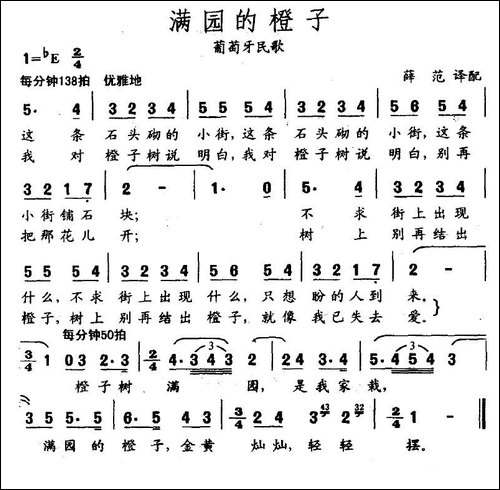 满园的橙子
葡萄牙民歌
1=♭E 2/4
每分钟138拍 优雅地
薛范 译配
5· 4 | 3 2 3 4 | 5 5 5 4 | 3 2 3 4 | 5 5 5 4 |
这条石头砌的小街,这条石头砌的小街,这条
我对橙子树说明白,我对橙子树说明白,别再
3 2 1 7 | 2 - | 1· 0 | 5· 4 | 3 2 3 4 |
小街铺石块; 不求街上出现
把那花儿开; 树上别再结出
5 5 5 4 | 3 2 3 4 | 5 6 5 4 | 3 2 1 7 | 2 - |
什么,不求街上出现什么,只想盼的人到来。
橙子,树上别再结出橙子,就像我已失去爱。}
每分钟50拍
3/4 1 03 2·3 | 2/4 4·3 343 | 2· 0 2 | 3·2 232 | 5·4 54 3 |
橙子树满园,是我家栽,
3 5 5·5 | 6· 5 5·4 | 3/4 2 4 3 43 2 32 | 2/4 1 - |
满园的橙子,金黄灿灿,轻轻摆。